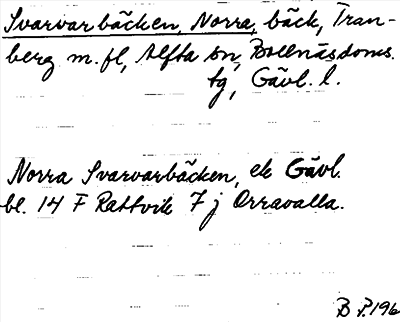 Svarvarbäcken, Norra, bäck, Tran-
berg m. fl, Alfta sn, Bollnäsdoms.
tg, Gävl. l.
Norra Svarvarbäcken, ek Gävl.
bl. 14 F Rättvik 7 j Orravalla.
B P. 196